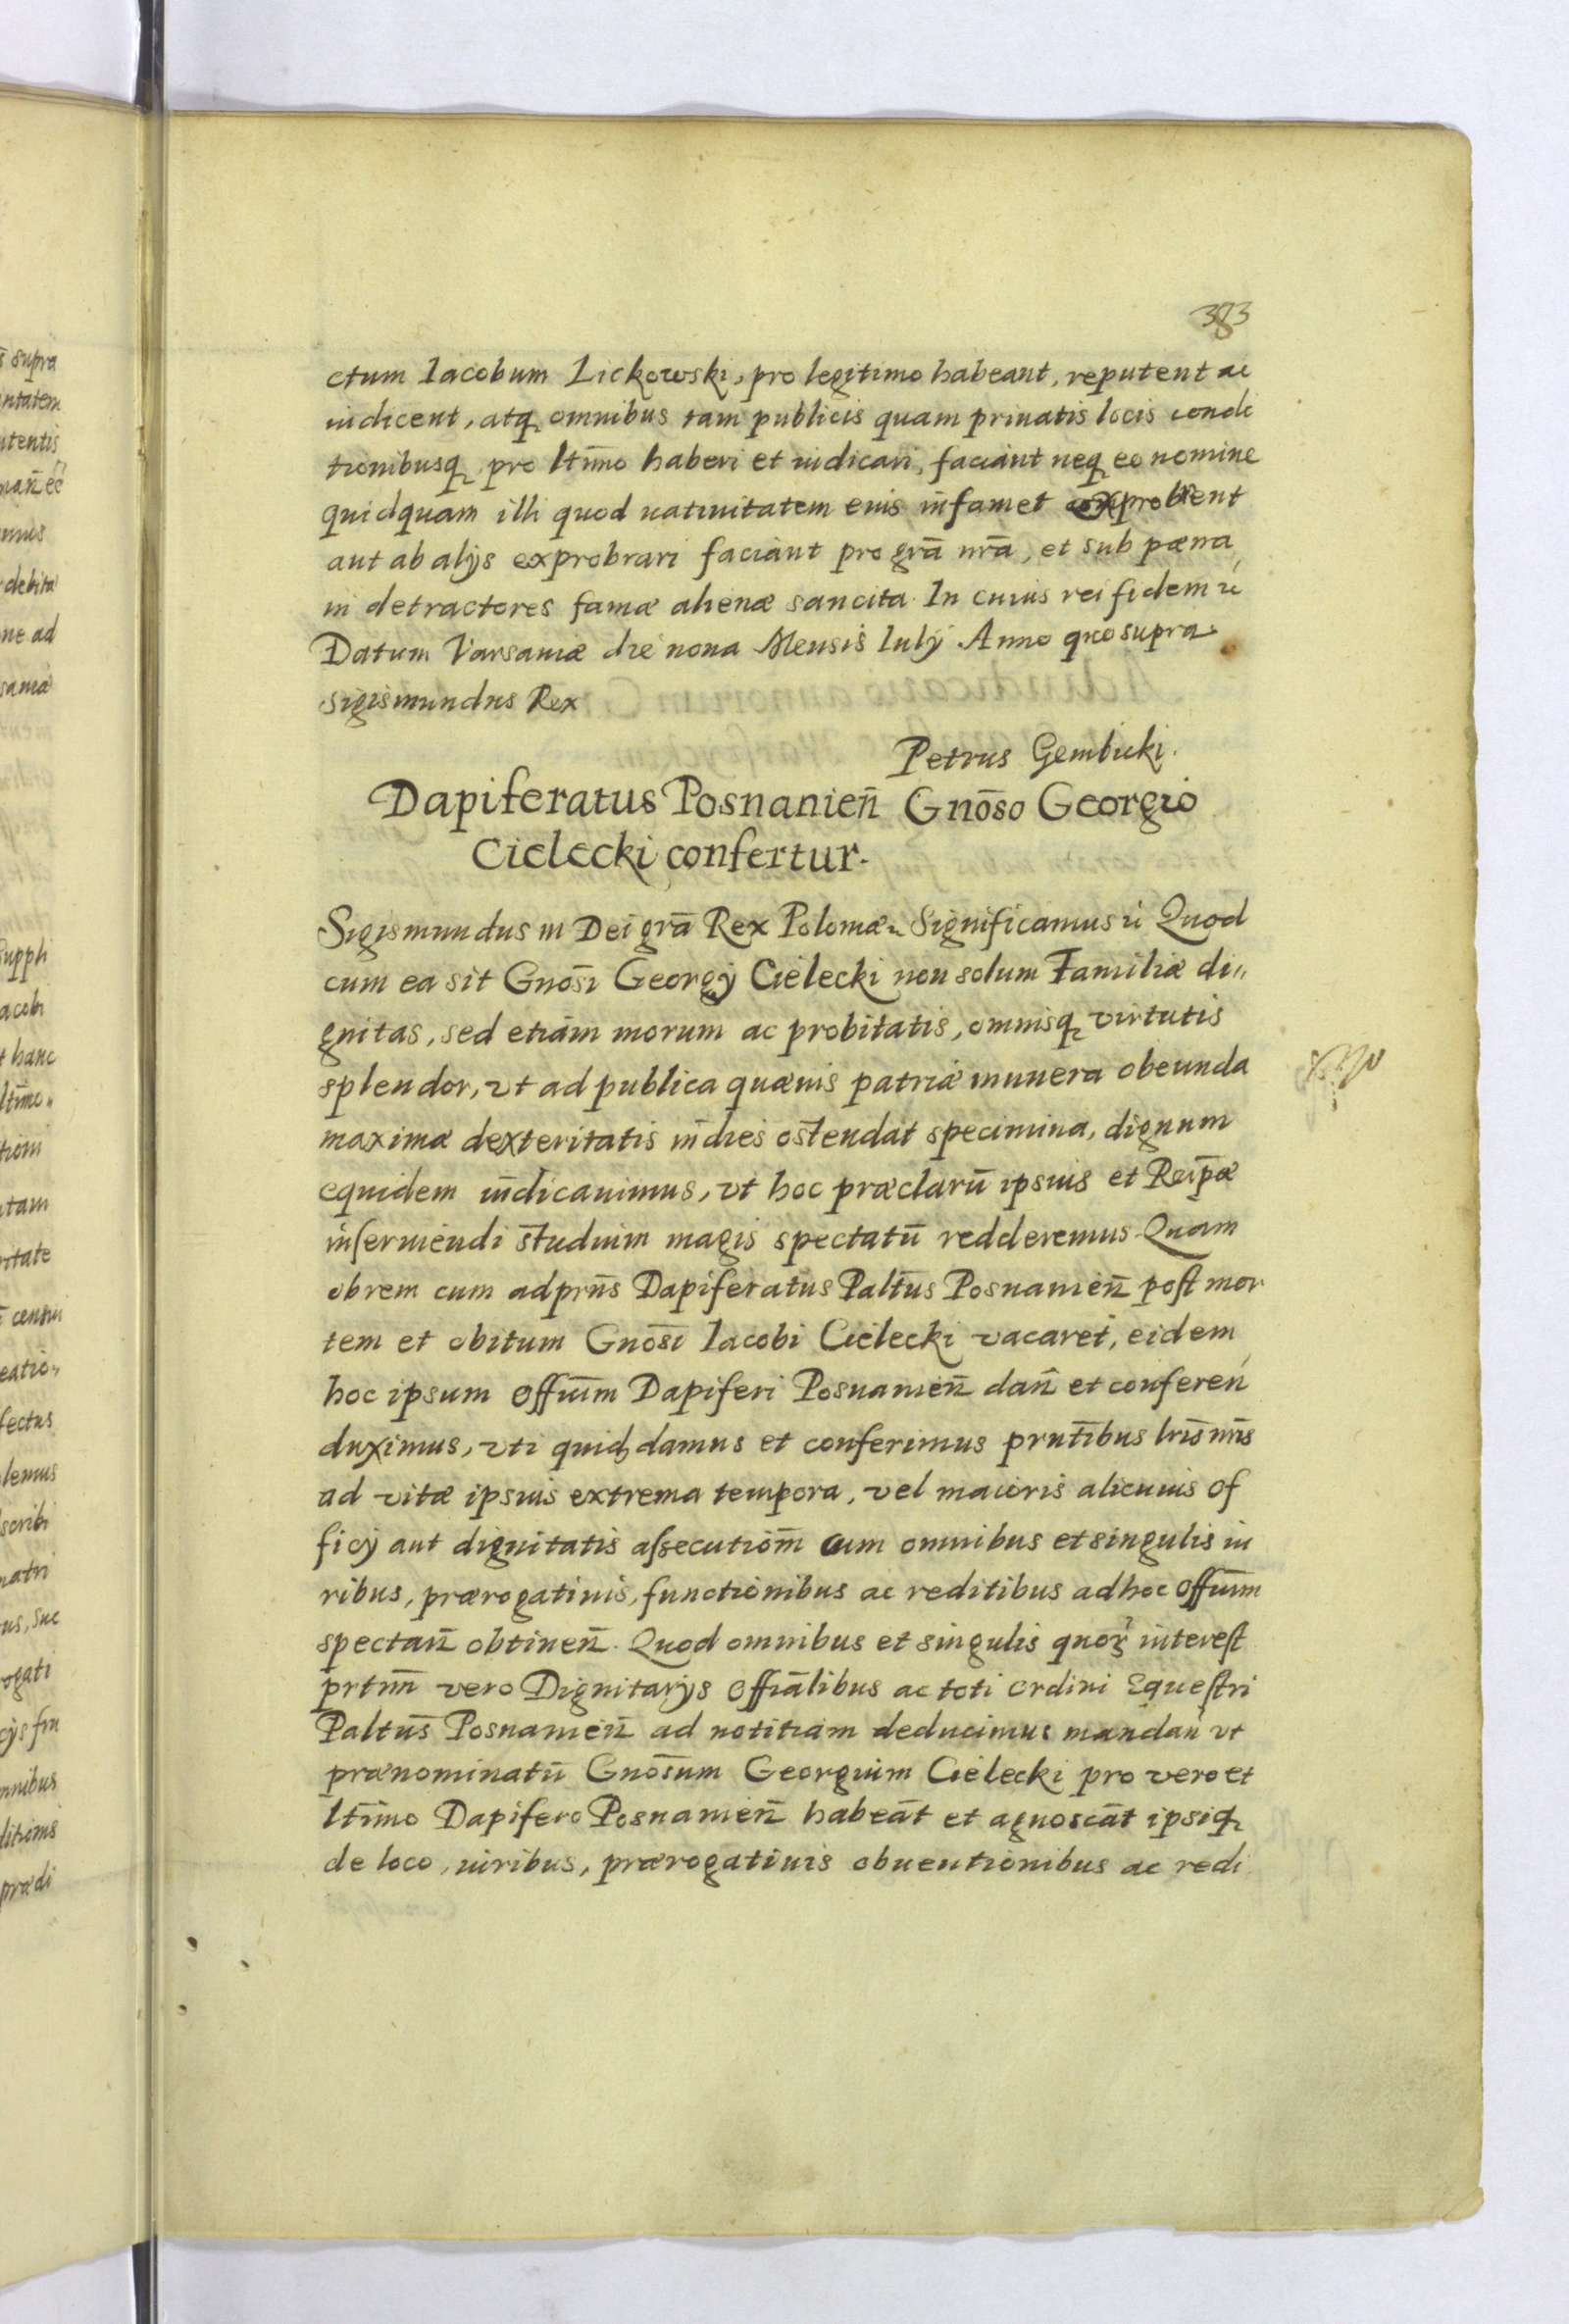 383
ctum Iacobum Lickowski, pro legitimo habeant, reputent ac
iudicent, atq, omnibus tam publicis quam priuatis locis condi
tionibusq, pro ltīmo haberi et iudicari, faciant neq, eo nomine
quidquam illi quod natiuitatem eius infamet exprobrent
aut ab alijs exprobrari faciant pro grā nrā, et sub pœna
in detractores famæ alienæ sancita. In cuius rei fidem
Datum Varsauiæ die nona Mensis Iulij Anno quo supra
Sigismundus Rex
Petrus Gembicki.
Dapiferatus Posnanien̄ Gnōso Georgio
Cielecki confertur.
Sigismundus III Dei grā Rex Poloniæ Significamus Quod
cum ea sit Gnōsi Georgij Cielecki non solum Familiæ di„
gnitas, sed etiam morum ac probitatis, omnisq, virtutis
splendor, vt ad publica quæuis patriæ munera obeunda
maximæ dexteritatis indies ostendat specimina, dignum
equidem iudicauimus, vt hoc præclarū ipsius et Reip̄æ
inseruiendi studium magis spectatū redderemus Quam
obrem cum ad prn̄s Dapiferatus Paltn̄s Posnanien̄ post mor
tem et obitum Gnōsi Iacobi Cielecki vacaret, eidem
hoc ipsum Offium̄ Dapiferi Posnanien̄ dan̄ et conferen̄
duximus, vti quidē damus et conferimus prntībus lris nr̄is
ad vitæ ipsius extrema tempora, vel maioris alicuius Of
ficij aut dignitatis assecutiom̄ cum omnibus et singulis iu
ribus, prærogatiuis, functionibus ac reditibus ad hoc Offium̄
spectan̄ obtinen̄. Quod omnibus et singulis quorȝ interest
prtim̄ vero Dignitarijs Offiālibus ac toti Ordini Equestri
Paltūs Posnanien̄ ad notitiam deducimus mandan̄ vt
prænominatū Gnōsum Georgium Cielecki pro vero et
ltīmo Dapifero Posnanien̄ habeāt et agnoscāt ipsiq,
de loco, iuribus, prærogatiuis obuentionibus ac redi